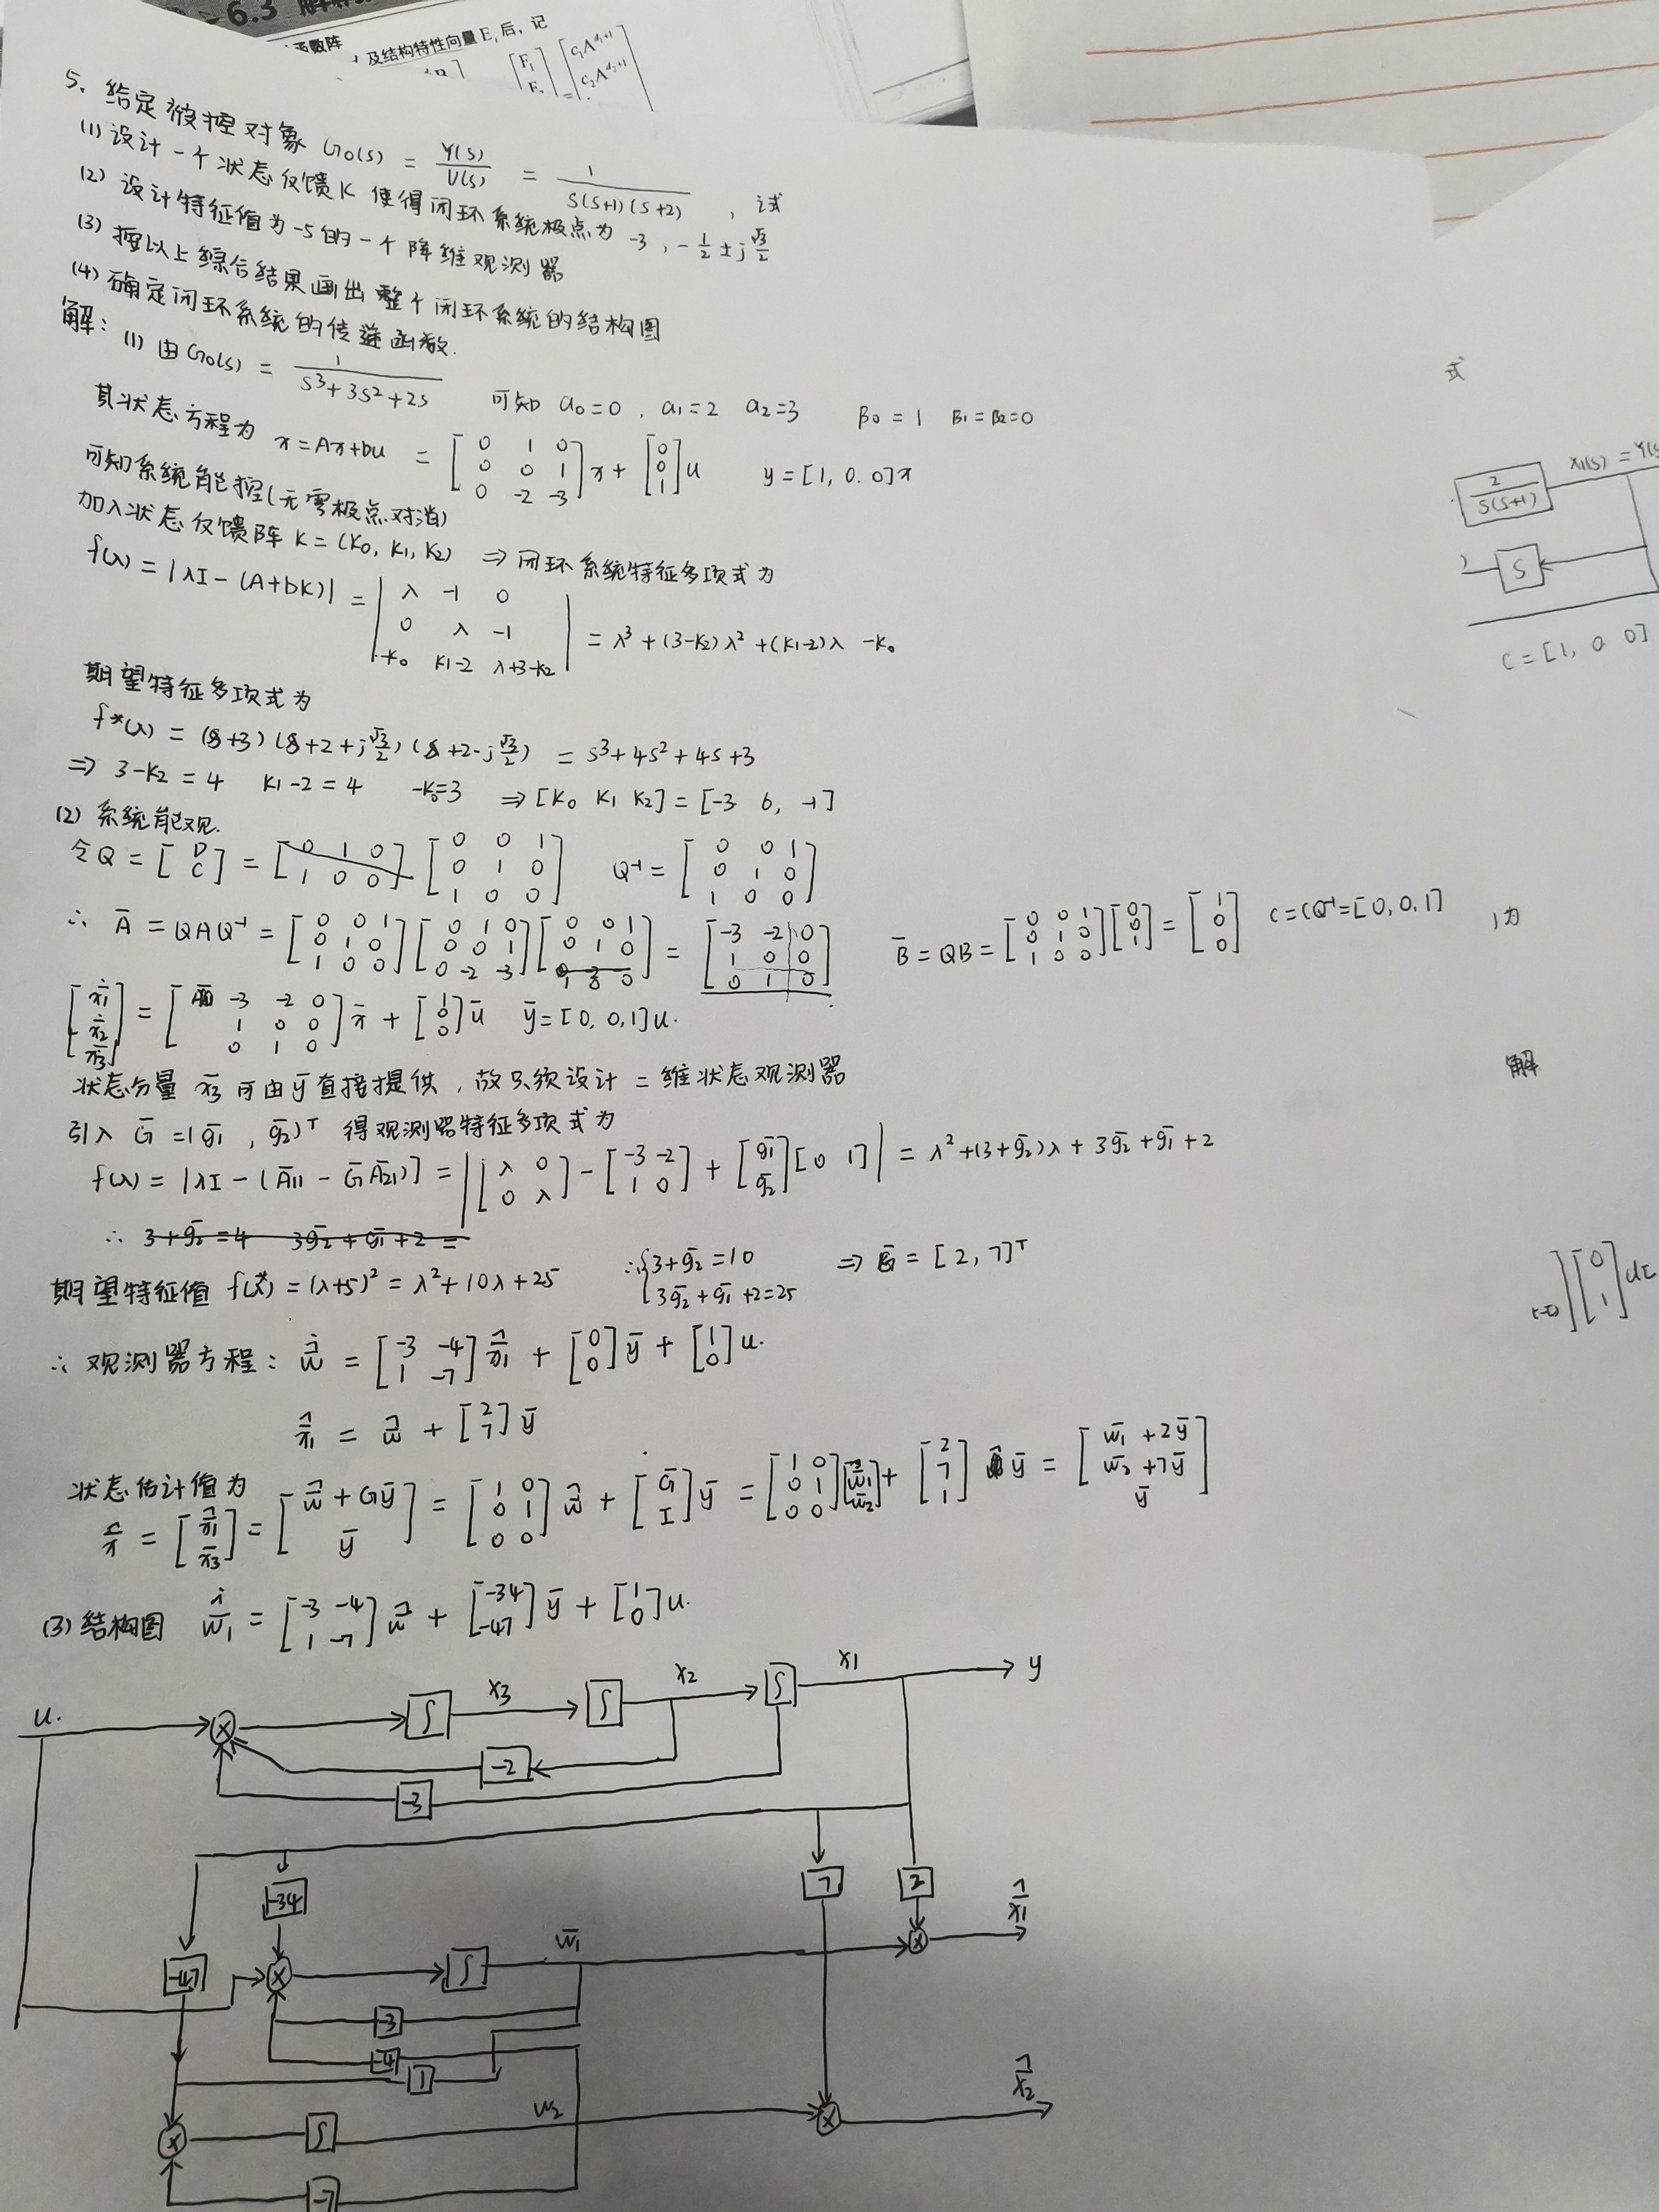 6.3
函数阵
及结构特性向量E,后,记
5、给定被控对象 G0(s) = Y(s)/U(s) = 1/(s(s+1)(s+2)) ,试
(1) 设计一个状态反馈K 使得闭环系统极点为 -3, -1/2 ± j √3/2
(2) 设计特征值为-5的一个降维观测器
(3) 按以上综合结果画出整个闭环系统的结构图
(4) 确定闭环系统的传递函数.
解: (1) 由G0(s) = 1/(s³+3s²+2s) 可知 a0=0, a1=2 a2=3 β0=1 β1=β2=0
其状态方程为 x=Ax+bu = [0 1 0; 0 0 1; 0 -2 -3]x + [0; 0; 1]u y=[1, 0. 0]x
可知系统能控(无零极点对消)
加入状态反馈阵 K=(K0, K1, K2) ⇒ 闭环系统特征多项式为
f(λ) = |λI-(A+bK)| = |λ -1 0; 0 λ -1; -K0 K1-2 λ+3-K2| = λ³+(3-K2)λ²+(K1-2)λ -K0
期望特征多项式为
f*(λ) = (s+3)(s+2+j√3/2)(s+2-j√3/2) = s³+4s²+4s+3
⇒ 3-K2=4 K1-2=4 -K0=3 ⇒ [K0 K1 K2] = [-3 6, -1]
(2) 系统能观.
令Q = [D; C] = [0 1 0; 1 0 0] [0 0 1; 0 1 0; 1 0 0] Q⁻¹ = [0 0 1; 0 1 0; 1 0 0]
∴ Ā = QAQ⁻¹ = [0 0 1; 0 1 0; 1 0 0][0 1 0; 0 0 1; 0 -2 -3][0 0 1; 0 1 0; 1 0 0] = [-3 -2 0; 1 0 0; 0 1 0] B̄ = QB = [0 0 1; 0 1 0; 1 0 0][0; 0; 1] = [1; 0; 0] C=CQ⁻¹=[0, 0, 1]
[ẋ1; ẋ2; ẋ3] = [-3 -2 0; 1 0 0; 0 1 0]x̄ + [1; 0; 0]ū ȳ=[0, 0, 1]u.
状态分量 x̄3 可由ȳ直接提供, 故只须设计二维状态观测器
引入 Ḡ=(ḡ1, ḡ2)ᵀ 得观测器特征多项式为
f(λ) = |λI-(Ā11-ḠĀ21)| = |[λ 0; 0 λ] - [-3 -2; 1 0] + [ḡ1; ḡ2][0 1]| = λ²+(3+ḡ2)λ+3ḡ2+ḡ1+2
∴ 3+ḡ2=4 3ḡ2+ḡ1+2=
期望特征值 f*(λ) = (λ+5)² = λ²+10λ+25 ∴{3+ḡ2=10; 3ḡ2+ḡ1+2=25 ⇒ Ḡ=[2, 7]ᵀ
∴ 观测器方程: ŵ̇ = [-3 -4; 1 -7]x̄̂1 + [0; 0]ȳ + [1; 0]u.
x̄̂1 = ŵ + [2; 7]ȳ
状态估计值为
x̄̂ = [x̄̂1; x̄3] = [ŵ+Gȳ; ȳ] = [1 0; 0 1; 0 0]ŵ + [Ḡ; I]ȳ = [1 0; 0 1; 0 0][w̄1; w̄2] + [2; 7; 1]ȳ = [w̄1+2ȳ; w̄2+7ȳ; ȳ]
(3) 结构图 ẇ̄1 = [-3 -4; 1 -7]ŵ + [-34; -47]ȳ + [1; 0]u.
u. ∫ x3 ∫ x2 ∫ x1 y
-2
-3
-34 7 2
-47 ∫ w̄1 x̄̂1
-3
-4
1
∫ w2 x̄̂2
-7
式
2/(s(s+1)) X1(s)=Y(s
S
C=[1, 0 0]
1为
解
(t-τ)][0; 1]dτ